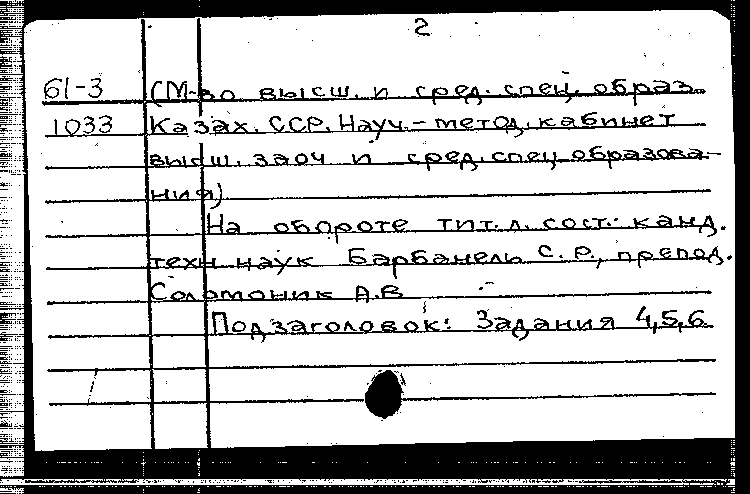 2
61-3 (М-во высш. и сред. спец. образ.
1033 Казах. ССР. Науч.-метод. кабинет
высш. заоч и сред. спец образова-
ния)
На обороте тит. л. сост.: канд.
техн наук Барбанель С.Р., препод.
Соломоник А.В
Подзаголовок: Задания 4,5,6